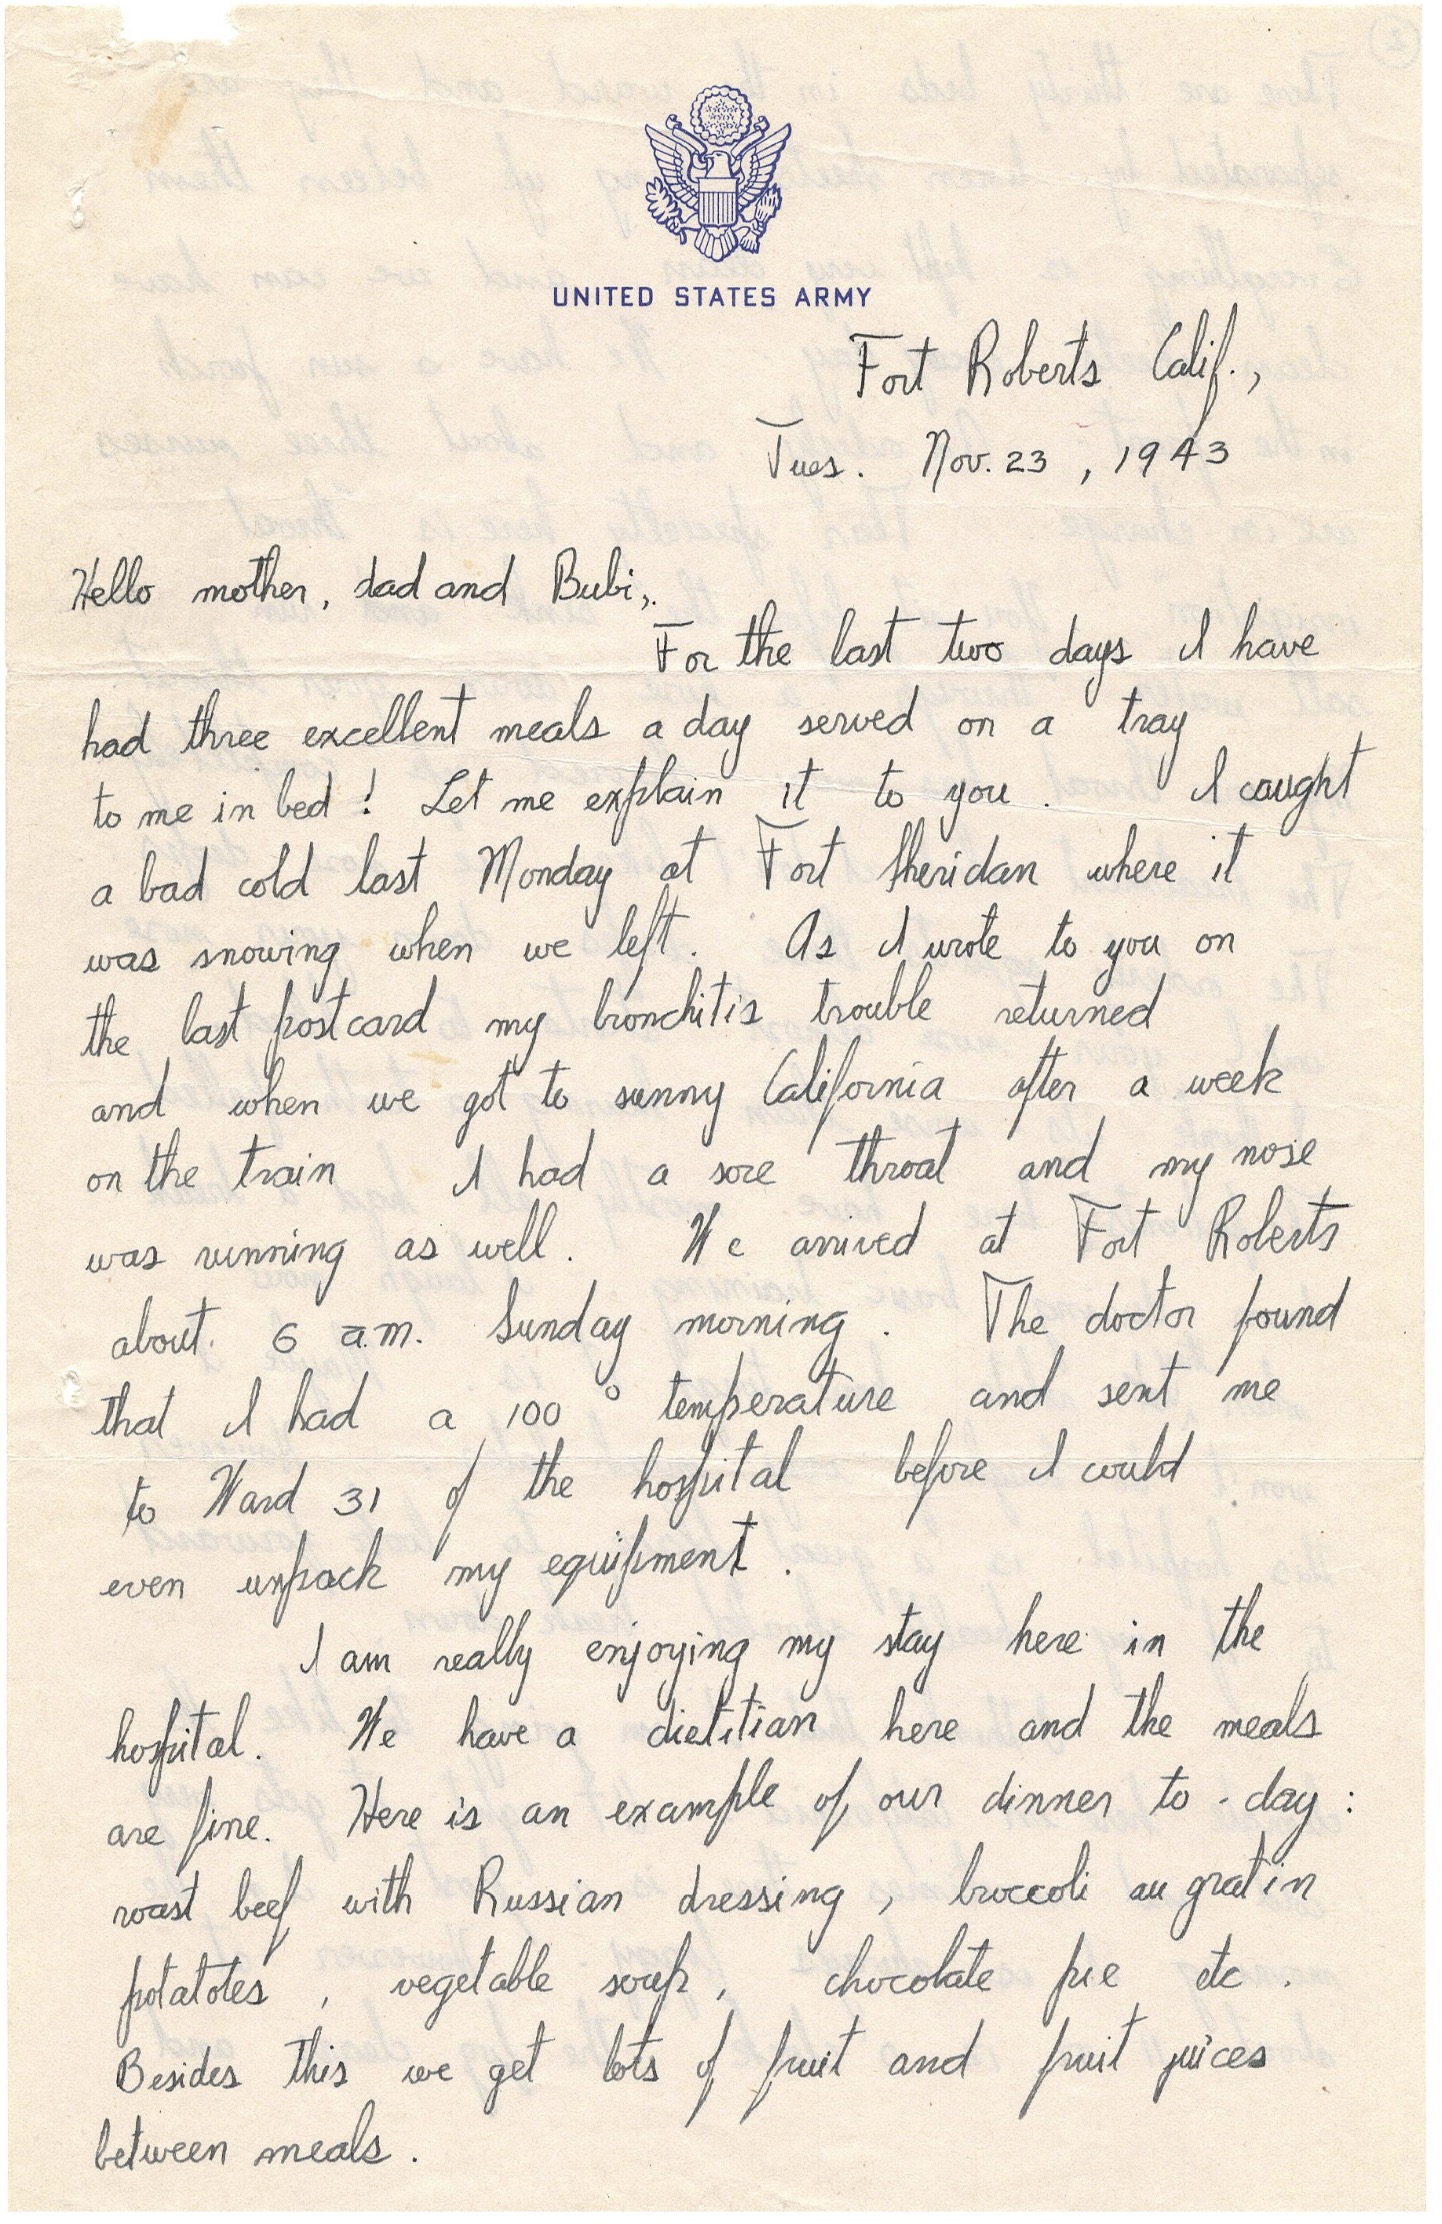 UNITED STATES ARMY
Fort Roberts Calif.,
Tues. Nov. 23, 1943
Hello mother, dad and Bubi,
For the last two days I have
had three excellent meals a day served on a tray
to me in bed! Let me explain it to you. I caught
a bad cold last Monday at Fort Sheridan where it
was snowing when we left. As I wrote to you on
the last postcard my bronchitis trouble returned
and when we got to sunny California after a week
on the train I had a sore throat and my nose
was running as well. We arrived at Fort Roberts
about 6 a.m. Sunday morning. The doctor found
that I had a 100° temperature and sent me
to Ward 31 of the hospital before I could
even unpack my equipment.
I am really enjoying my stay here in the
hospital. We have a dietitian here and the meals
are fine. Here is an example of our dinner to-day:
roast beef with Russian dressing, broccoli au gratin
potatotes, vegetable soup, chocolate pie etc.
Besides this we get lots of fruit and fruit juices
between meals.